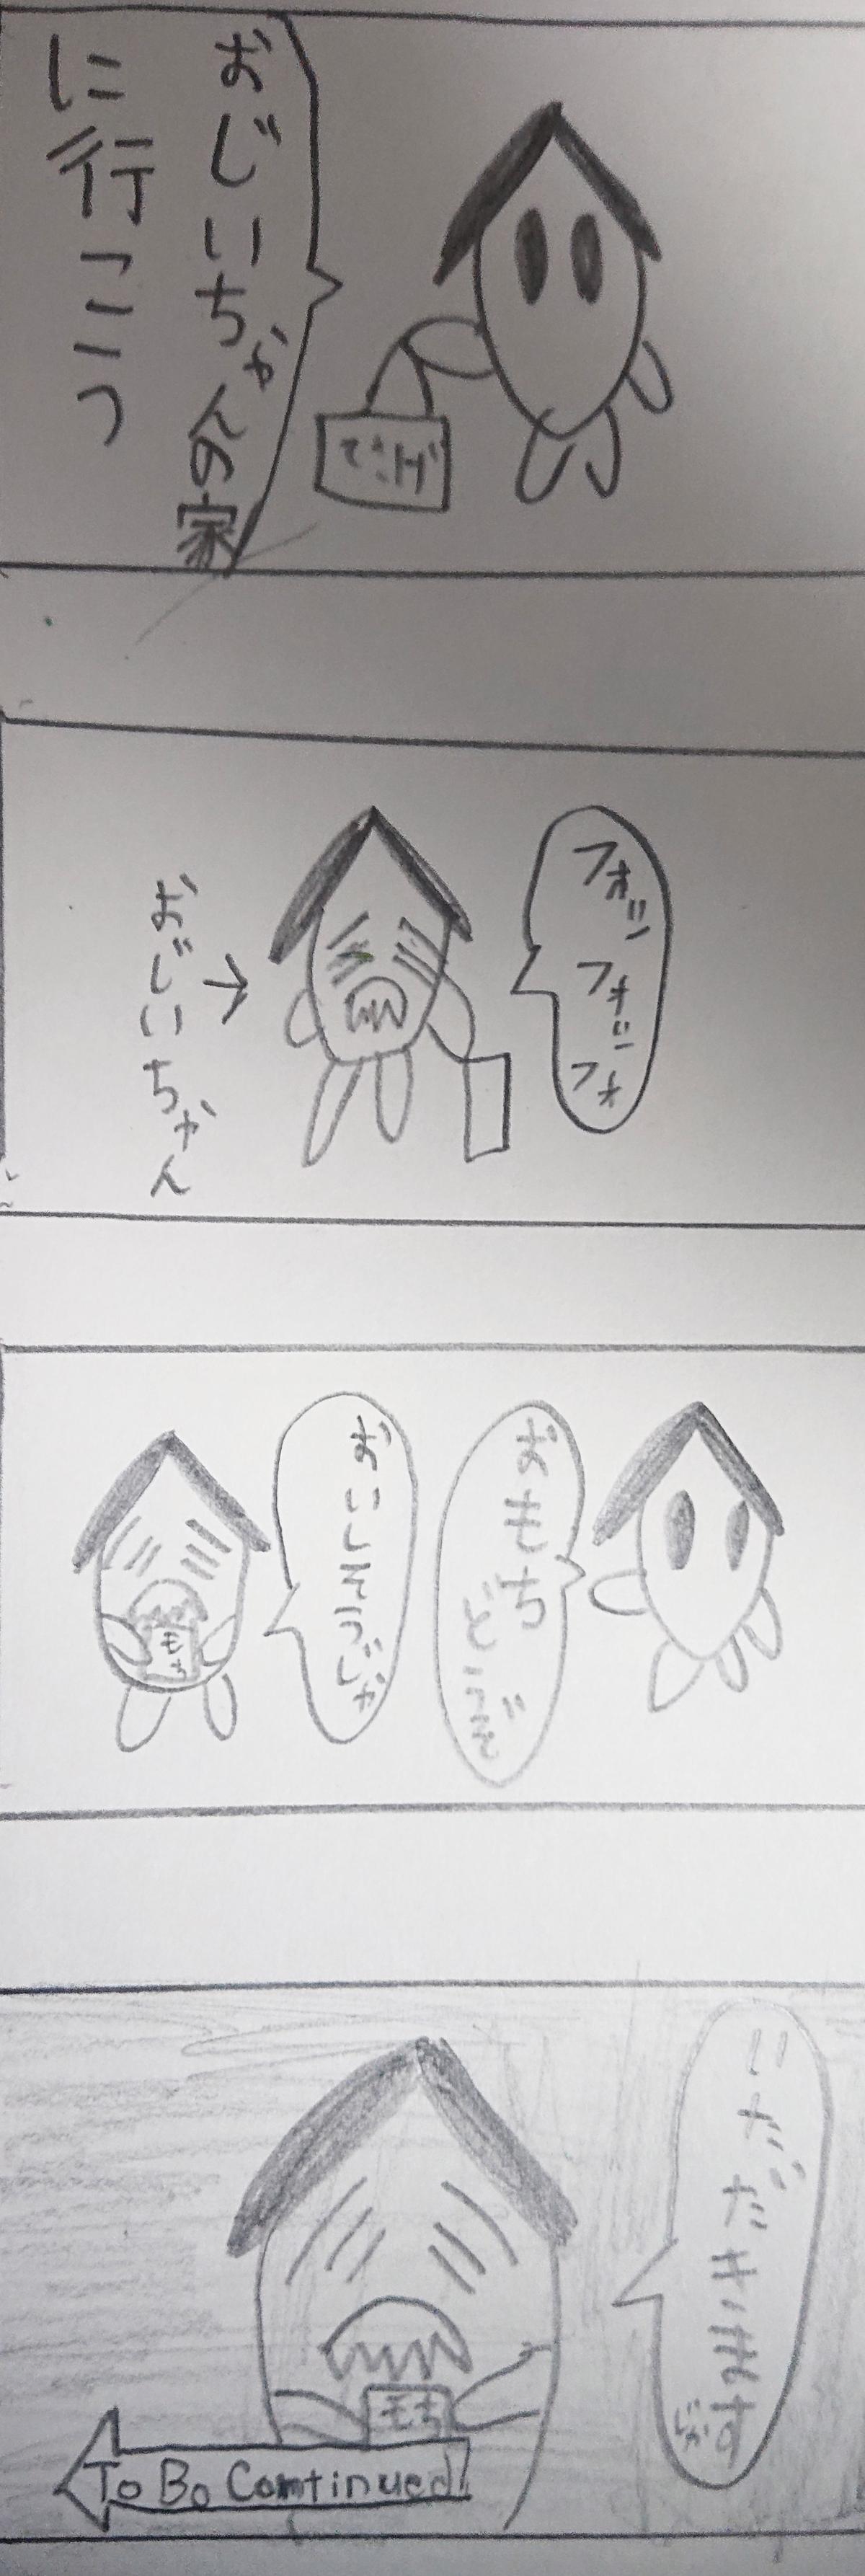 おじいちゃんの家
に行こう
てさげ
フォッフォッフォ
おじいちゃん
→
おもち
どうぞ
おいしそうじゃ
もち
いただきます
じゃ
もち
To Bo Comtinued!